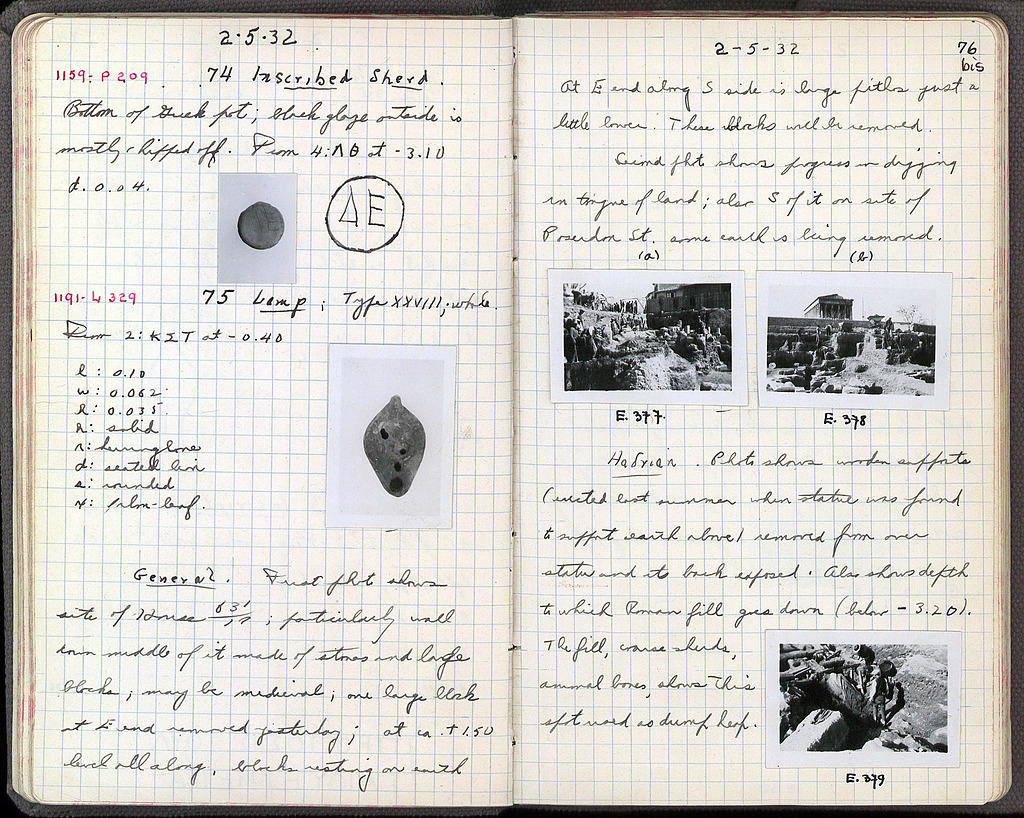 2·5·32
1159- P 209 74 Inscribed Sherd.
Bottom of Greek pot; black glaze outside is
mostly chipped off. From 4:ΛΘ at -3.10
d. 0.04.
ΔΕ
1191- L 329 75 Lamp; Type XXVIII; whole.
From 2: ΚΣΤ at -0.40
l: 0.10
w: 0.062
h: 0.035
h: solid
r: herringbone
d: seated lion
a: rounded
x: palm-leaf.
General. First phot shows
site of House 631/; particularly wall
down middle of it made of stones and large
blocks; may be medieval; one large block
at E end removed yesterday; at ca. +1.50
level all along, blocks resting on earth
2-5-32
76
bis
At E end along S side is large pithos just a
little lower. These blocks will be removed.
Second phot shows progress in digging
in tongue of land; also S of it on site of
Poseidon St. some earth is being removed.
(a) (b)
E. 377. E. 378
Hadrian. Photo shows wooden supports
(erected last summer when statue was found
to support earth above) removed from over
statue and its back exposed. Also shows depth
to which Roman fill goes down (below -3.20).
The fill, coarse sherds,
animal bones, shows this
spot used as dump heap.
E. 379